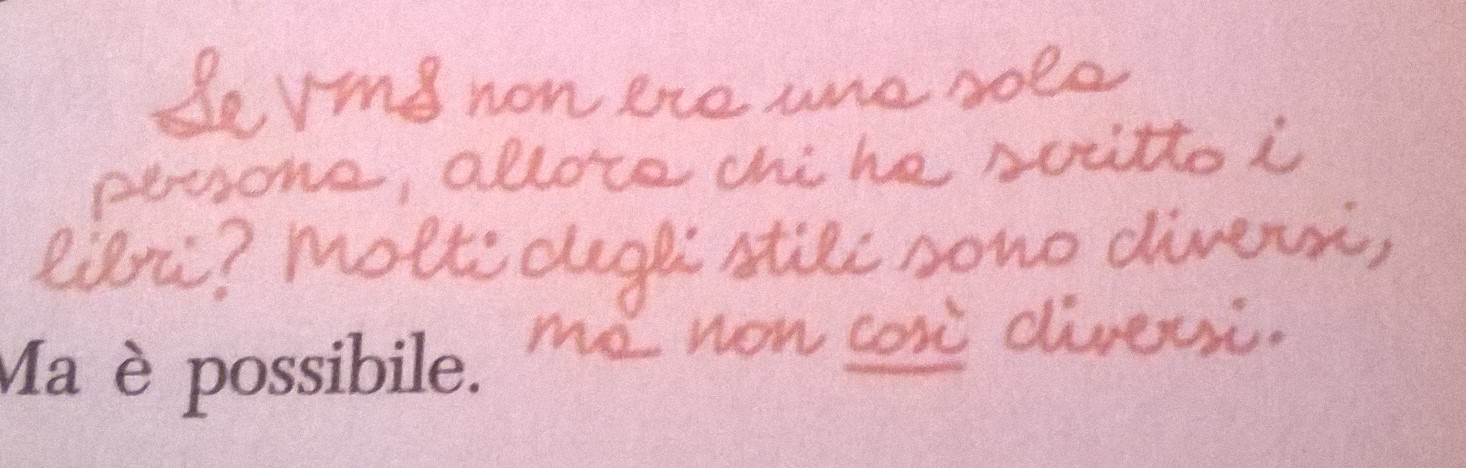 Se VMS non era una sola
persona, allora chi ha scritto i
libri? Molti degli stili sono diversi,
ma non così diversi.
Ma è possibile.